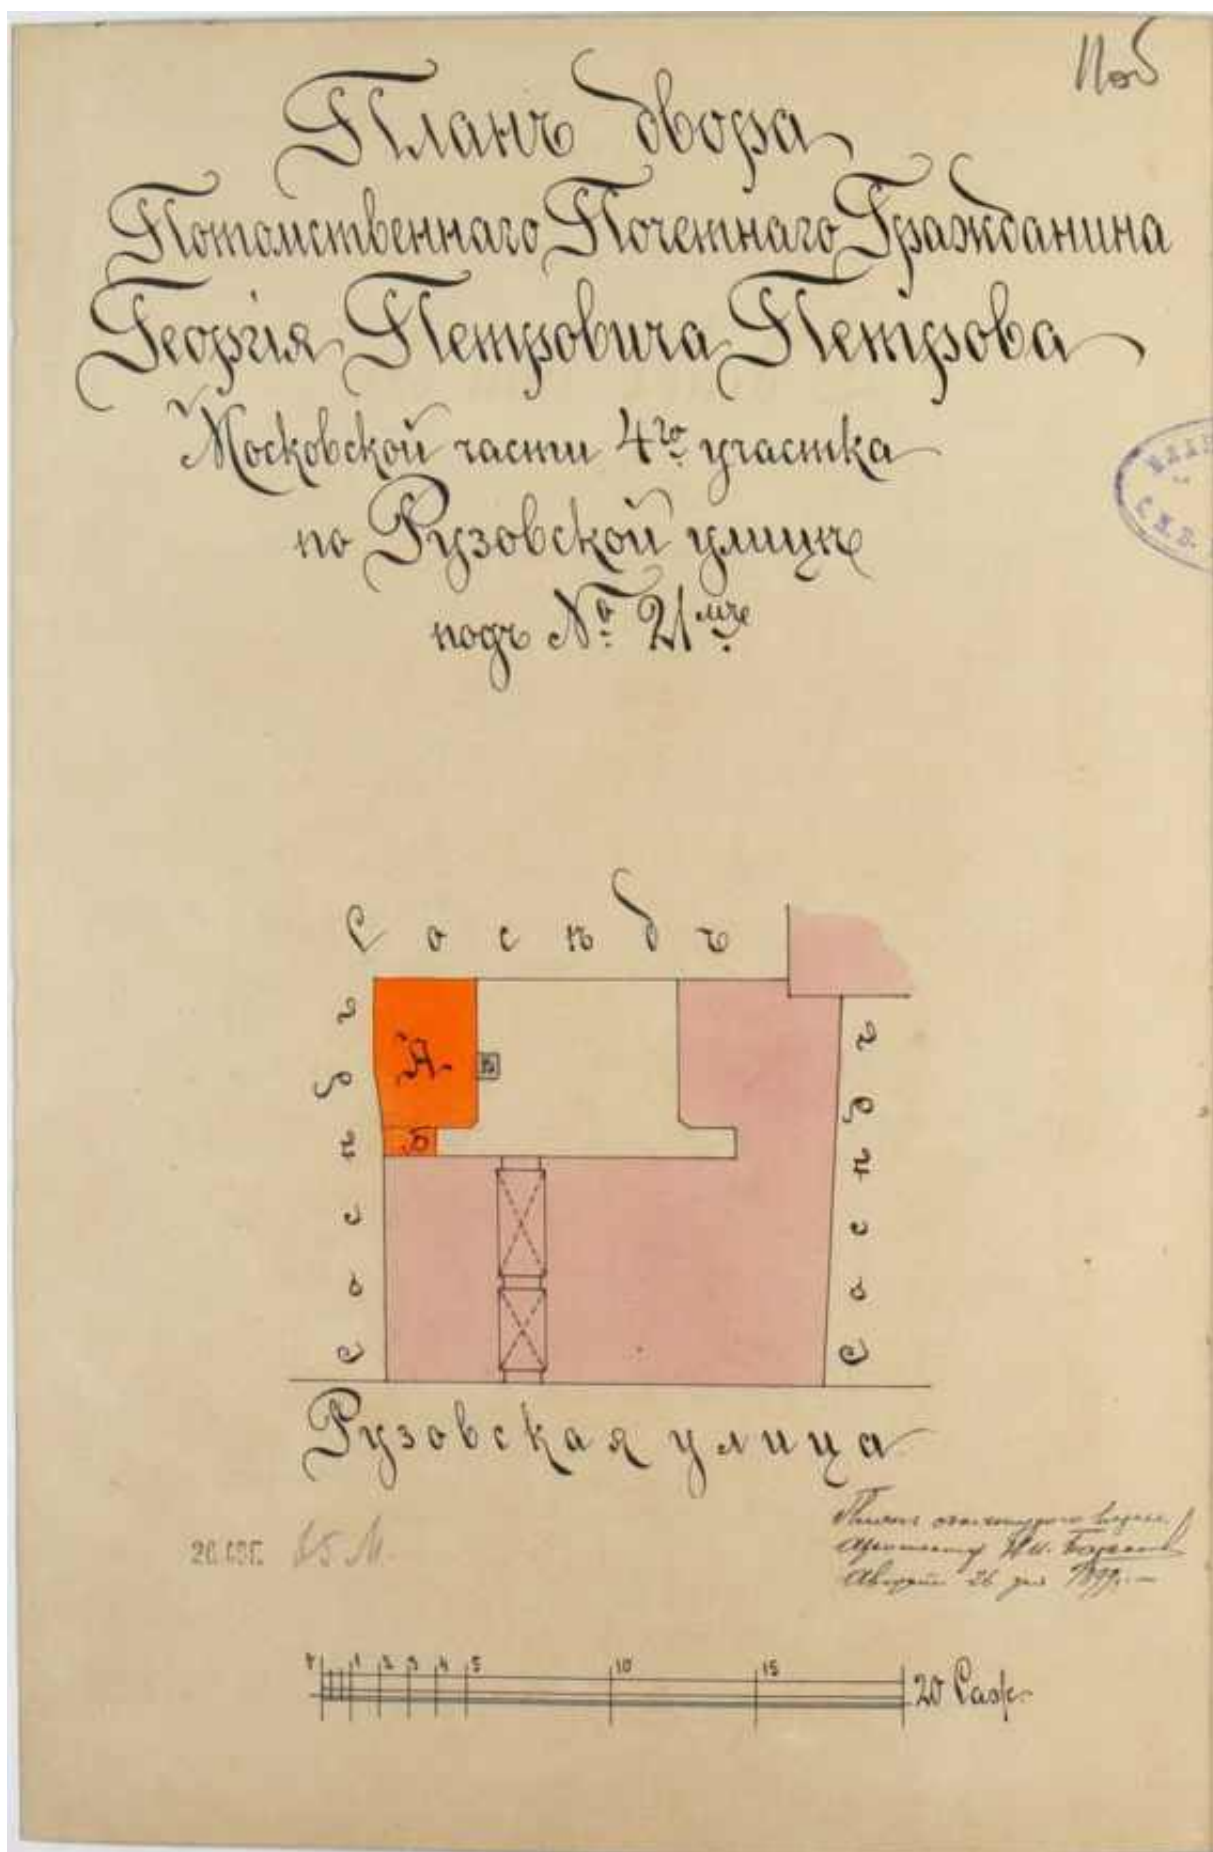 Планъ двора
Потомственнаго Почетнаго Гражданина
Георгія Петровича Петрова
Московской части 4го участка
по Рузовской улицѣ
подъ № 21мъ
Сосѣдъ
Сосѣдъ
А
В
Б
Сосѣдъ
Рузовская улица
Архитекторъ
26 дня 1899
1 2 3 4 5 10 15 20 Саж.